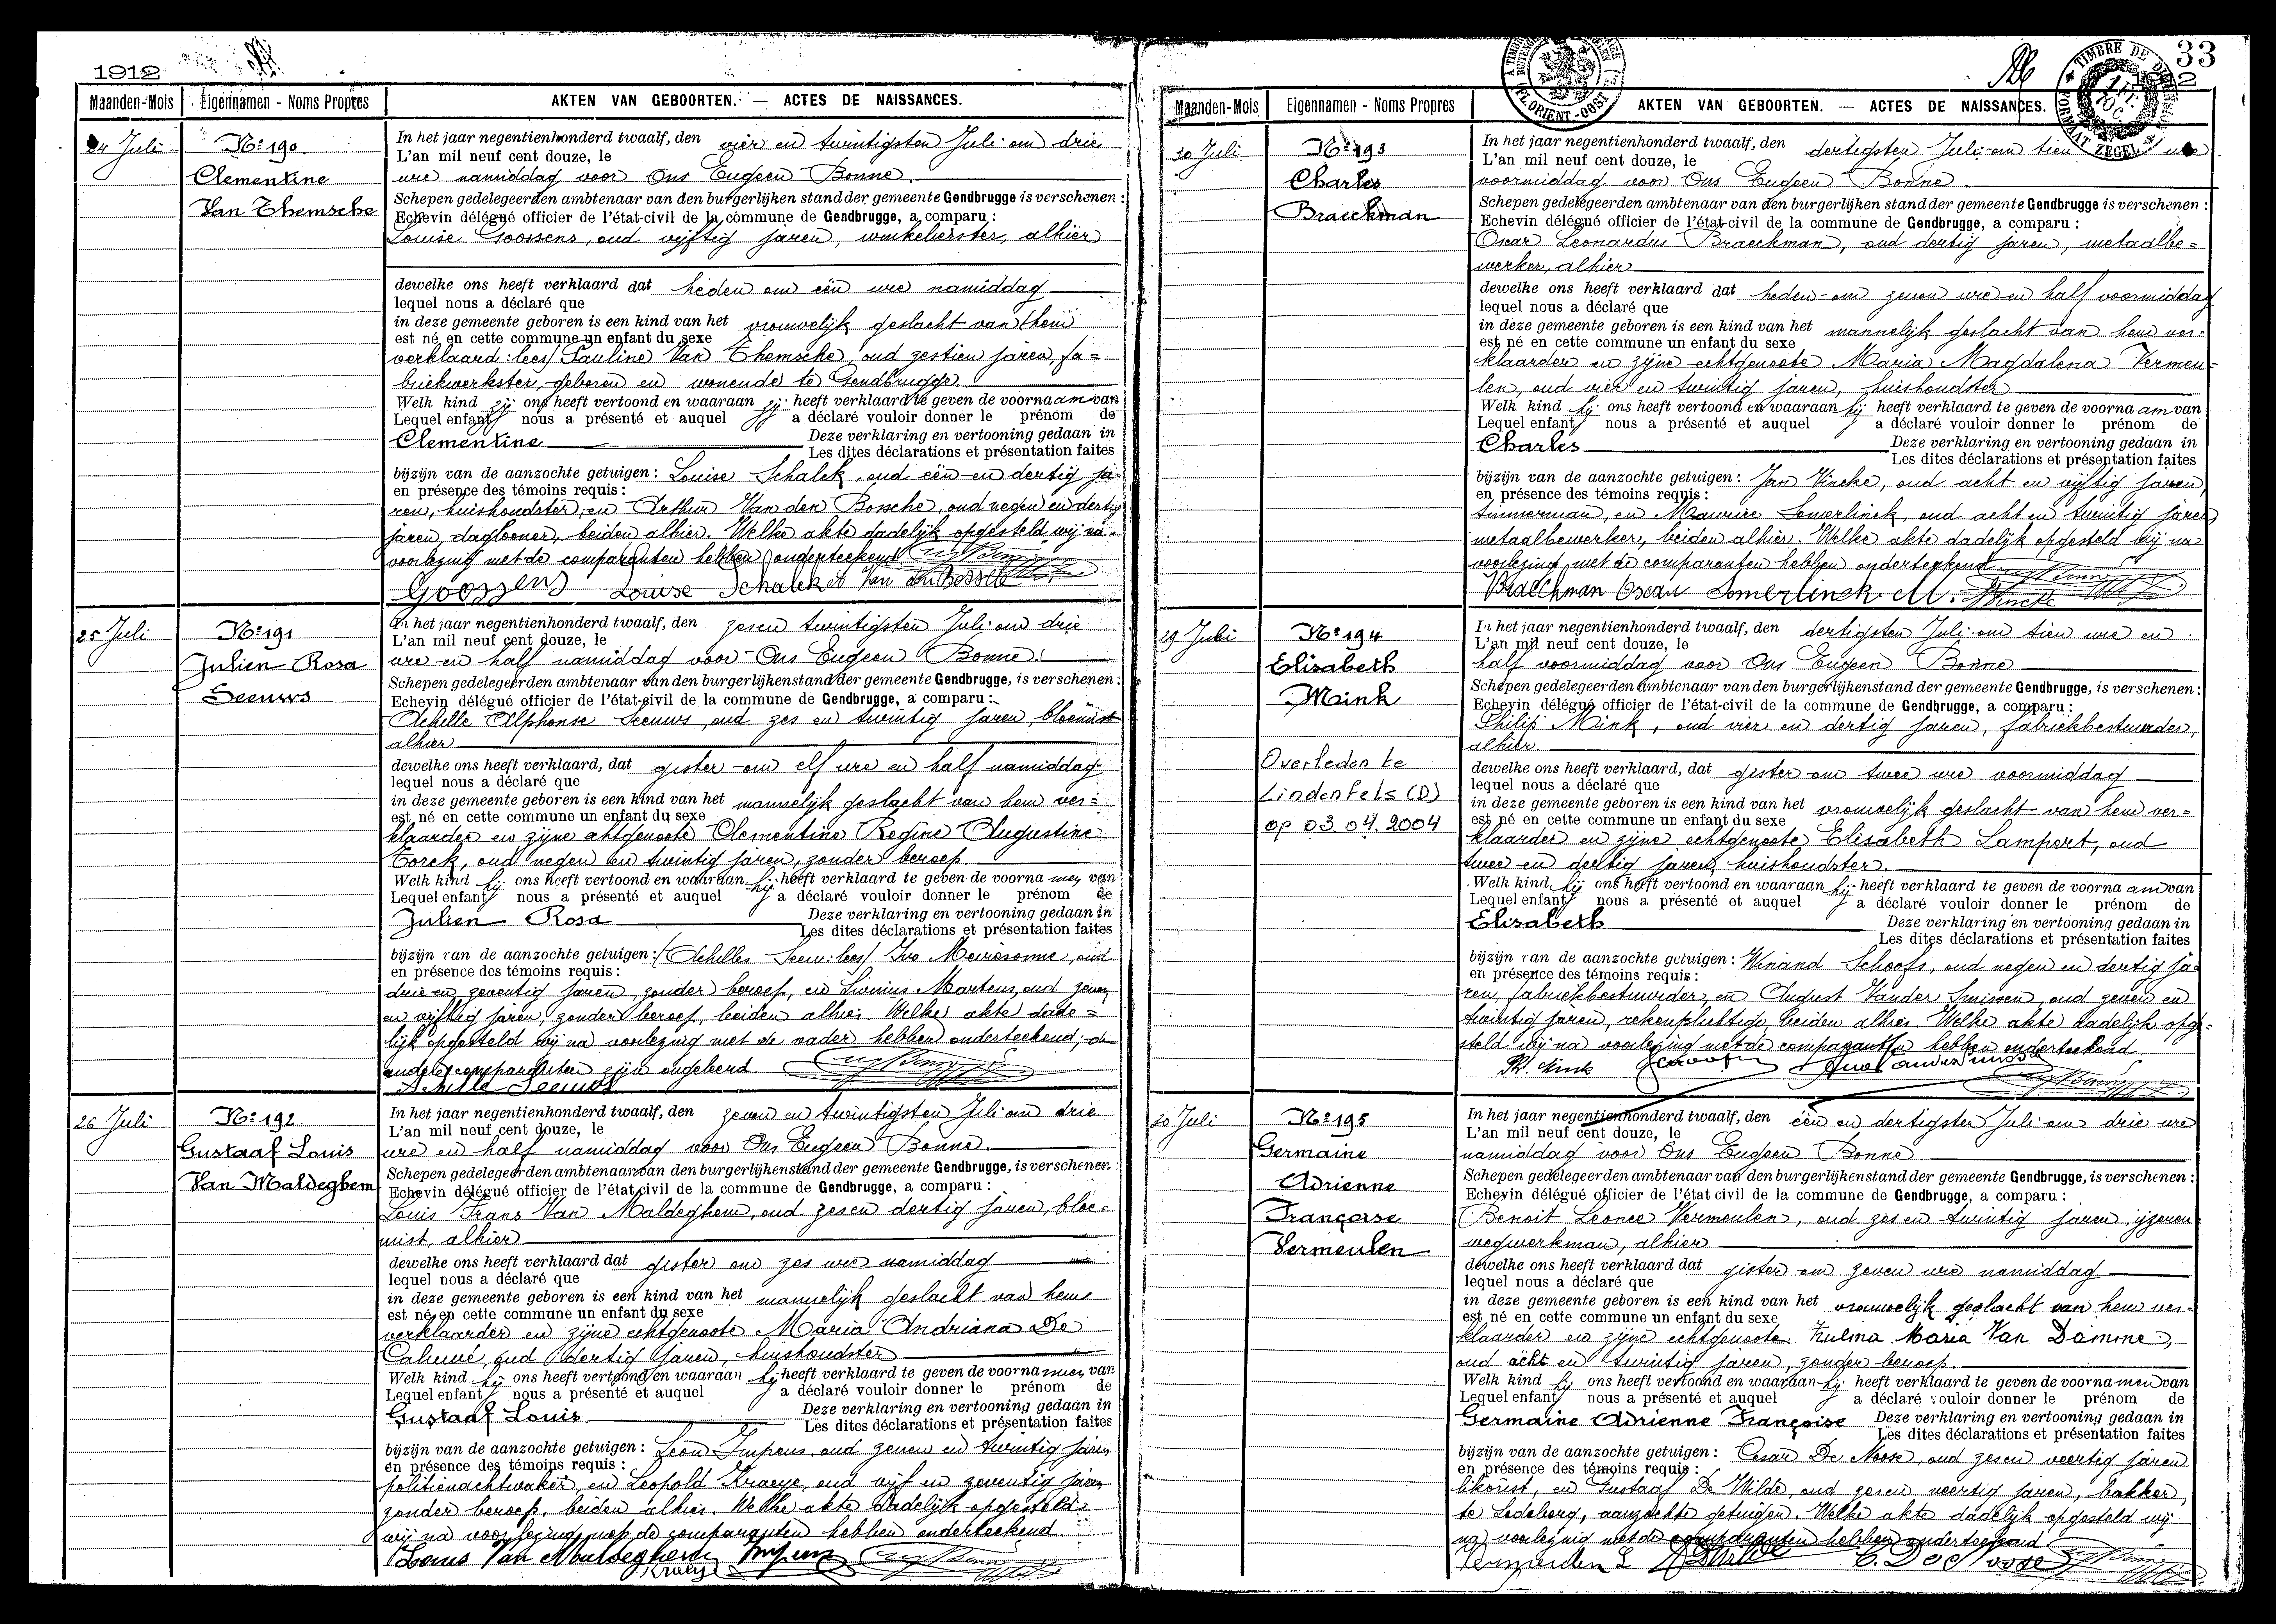 1912
Maanden-Mois Eigennamen - Noms Propres AKTEN VAN GEBOORTEN. — ACTES DE NAISSANCES.
24 Juli
No 190
Clementine
Van Themsche
In het jaar negentienhonderd twaalf, den vier en twintigsten Juli om drie
L'an mil neuf cent douze, le
ure namiddag voor Ons Eugeen Bonne.
Schepen gedelegeerden ambtenaar van den burgerlijken stand der gemeente Gendbrugge is verschenen:
Echevin délégué officier de l'état-civil de la commune de Gendbrugge, a comparu:
Louise Goossens, oud vijftig jaren, winkelierster, alhier
dewelke ons heeft verklaard dat heden om één ure namiddag
lequel nous a déclaré que
in deze gemeente geboren is een kind van het vrouwelijk geslacht van (hem
est né en cette commune un enfant du sexe
verklaard: lees) Pauline Van Themsche, oud zestien jaren, fa=
briekwerkster, geboren en wonende te Gendbrugge
Welk kind zij ons heeft vertoond en waaraan zij heeft verklaard te geven de voornaam van
Lequel enfant nous a présenté et auquel a déclaré vouloir donner le prénom de
Clementine Deze verklaring en vertooning gedaan in
Les dites déclarations et présentation faites
bijzijn van de aanzochte getuigen: Louise Schalck, oud één en dertig ja-
en présence des témoins requis:
ren, huishoudster, en Arthur Van den Bossche, oud negen en dertig
jaren, daglooner, beiden alhier. Welke akte dadelijk opgesteld wij na
voorlezing met de comparanten hebben onderteekend.
Goossens Louise Schalck A Van den Bossche
25 Juli
No 191
Julien Rosa
Seeuws
In het jaar negentienhonderd twaalf, den zesen twintigsten Juli om drie
L'an mil neuf cent douze, le
ure en half namiddag voor Ons Eugeen Bonne.
Schepen gedelegeerden ambtenaar van den burgerlijkenstand der gemeente Gendbrugge, is verschenen:
Echevin délégué officier de l'état-civil de la commune de Gendbrugge, a comparu:
Achille Alphonse Seeuws, oud zes en twintig jaren, bloemist
alhier
dewelke ons heeft verklaard, dat gister om elf ure en half namiddag
lequel nous a déclaré que
in deze gemeente geboren is een kind van het mannelijk geslacht van hem ver=
est né en cette commune un enfant du sexe
klaarder en zijne echtgenoote Clementine Regine Augustine
Torck, oud negen en twintig jaren, zonder beroep.
Welk kind hij ons heeft vertoond en waaraan hij heeft verklaard te geven de voornamen van
Lequel enfant nous a présenté et auquel a déclaré vouloir donner le prénom de
Julien Rosa Deze verklaring en vertooning gedaan in
Les dites déclarations et présentation faites
bijzijn van de aanzochte getuigen: (Achilles Seeuw: lees) Ivo oud
en présence des témoins requis:
drie en zeventig jaren, zonder beroep, en Livinus Martens, oud zeven
en vijftig jaren, zonder beroep, beiden alhier. Welke akte dade=
lijk opgesteld wij na voorlezing met de vader hebben onderteekend; de
andere comparanten zijn ongeleerd.
Achille Seeuws
26 Juli
No 192
Gustaaf Louis
Van Maldeghem
In het jaar negentienhonderd twaalf, den zeven en twintigsten Juli om drie
L'an mil neuf cent douze, le
ure en half namiddag voor Ons Eugeen Bonne.
Schepen gedelegeerden ambtenaar van den burgerlijkenstand der gemeente Gendbrugge, is verschenen
Echevin délégué officier de l'état civil de la commune de Gendbrugge, a comparu:
Louis Frans Van Maldeghem, oud zesen dertig jaren, bloe=
mist, alhier
dewelke ons heeft verklaard dat gister om zes ure namiddag
lequel nous a déclaré que
in deze gemeente geboren is een kind van het mannelijk geslacht van hem
est né en cette commune un enfant du sexe
verklaarder en zijne echtgenoote Maria Andriana De
Caluwé, oud dertig jaren, huishoudster
Welk kind hij ons heeft vertoond en waaraan hij heeft verklaard te geven de voornamen van
Lequel enfant nous a présenté et auquel a déclaré vouloir donner le prénom de
Gustaaf Louis Deze verklaring en vertooning gedaan in
Les dites déclarations et présentation faites
bijzijn van de aanzochte getuigen: Leon Impens, oud zeven en twintig jaren
en présence des témoins requis:
politienachtwaker, en Leopold Kraeye, oud vijf en zeventig jaren
zonder beroep, beiden alhier. Welke akte dadelijk opgesteld
wij na voorlezing met de comparanten hebben onderteekend
Louis Van Maldeghem Impens
Kraeye
33
TIMBRE DE DIMENSION
FORMAAT ZEGEL
FL. ORIENT - OOST
Maanden-Mois Eigennamen - Noms Propres AKTEN VAN GEBOORTEN. — ACTES DE NAISSANCES.
30 Juli
No 193
Charles
Braeckman
In het jaar negentienhonderd twaalf, den dertigsten Juli om tien ure
L'an mil neuf cent douze, le
voormiddag voor Ons Eugeen Bonne.
Schepen gedelegeerden ambtenaar van den burgerlijken stand der gemeente Gendbrugge is verschenen:
Echevin délégué officier de l'état-civil de la commune de Gendbrugge, a comparu:
Oscar Leonardus Braeckman, oud dertig jaren, metaalbe=
werker, alhier
dewelke ons heeft verklaard dat heden om zeven ure en half voormiddag
lequel nous a déclaré que
in deze gemeente geboren is een kind van het mannelijk geslacht van hem ver=
est né en cette commune un enfant du sexe
klaarder en zijne echtgenoote Maria Magdalena Vermeu=
len, oud vier en twintig jaren, huishoudster
Welk kind hij ons heeft vertoond en waaraan hij heeft verklaard te geven de voornaam van
Lequel enfant nous a présenté et auquel a déclaré vouloir donner le prénom de
Charles Deze verklaring en vertooning gedaan in
Les dites déclarations et présentation faites
bijzijn van de aanzochte getuigen: Jan Vincke, oud acht en vijftig jaren,
en présence des témoins requis:
timmerman, en Maurice Somerlinck, oud acht en twintig jaren
metaalbewerker, beiden alhier. Welke akte dadelijk opgesteld wij na
voorlezing met de comparanten hebben onderteekend
Braeckman Oscar Somerlinck M. Vincke
29 Juli
No 194
Elisabeth
Mink
Overleden te
Lindenfels (D)
op 03.04.2004
In het jaar negentienhonderd twaalf, den dertigsten Juli om tien ure en
L'an mil neuf cent douze, le
half voormiddag voor Ons Eugeen Bonne
Schepen gedelegeerden ambtenaar van den burgerlijkenstand der gemeente Gendbrugge, is verschenen:
Echevin délégué officier de l'état-civil de la commune de Gendbrugge, a comparu:
Philip Mink, oud vier en dertig jaren, fabriekbestuurder,
alhier.
dewelke ons heeft verklaard, dat gister om twee ure voormiddag
lequel nous a déclaré que
in deze gemeente geboren is een kind van het vrouwelijk geslacht van hem ver=
est né en cette commune un enfant du sexe
klaarder en zijne echtgenoote Elisabeth Lampert, oud
twee en dertig jaren, huishoudster.
Welk kind hij ons heeft vertoond en waaraan hij heeft verklaard te geven de voornaam van
Lequel enfant nous a présenté et auquel a déclaré vouloir donner le prénom de
Elisabeth Deze verklaring en vertooning gedaan in
Les dites déclarations et présentation faites
bijzijn van de aanzochte getuigen: Winand Schoofs, oud negen en dertig ja=
en présence des témoins requis:
ren, fabriekbestuurder, en August Vander Smissen, oud zeven en
twintig jaren, rekenplichtige, beiden alhier. Welke akte dadelijk opge=
steld wij na voorlezing met de comparanten hebben onderteekend
Ph. Mink Schoofs Aug Vander Smissen
30 Juli
No 195
Germaine
Adrienne
Françoise
Vermeulen
In het jaar negentienhonderd twaalf, den één en dertigsten Juli om drie ure
L'an mil neuf cent douze, le
namiddag voor Ons Eugeen Bonne.
Schepen gedelegeerden ambtenaar van den burgerlijkenstand der gemeente Gendbrugge, is verschenen:
Echevin délégué officier de l'état civil de la commune de Gendbrugge, a comparu:
Benoit Leonce Vermeulen, oud zes en twintig jaren, ijzeren
wegwerkman, alhier
dewelke ons heeft verklaard dat gister om zeven ure namiddag
lequel nous a déclaré que
in deze gemeente geboren is een kind van het vrouwelijk geslacht van hem ver=
est né en cette commune un enfant du sexe
klaarder en zijne echtgenoote Zulma Maria Van Damme,
oud acht en twintig jaren, zonder beroep.
Welk kind hij ons heeft vertoond en waaraan hij heeft verklaard te geven de voornamen van
Lequel enfant nous a présenté et auquel a déclaré vouloir donner le prénom de
Germaine Adrienne Françoise Deze verklaring en vertooning gedaan in
Les dites déclarations et présentation faites
bijzijn van de aanzochte getuigen: Cesar De Noose, oud zesen veertig jaren
en présence des témoins requis:
likeurist, en Gustaaf De Wilde, oud zesen veertig jaren, bakker,
te Ledeberg, aanzochte getuigen. Welke akte dadelijk opgesteld wij
na voorlezing met de comparanten hebben onderteekend
Vermeulen B De Wilde C. De Noose